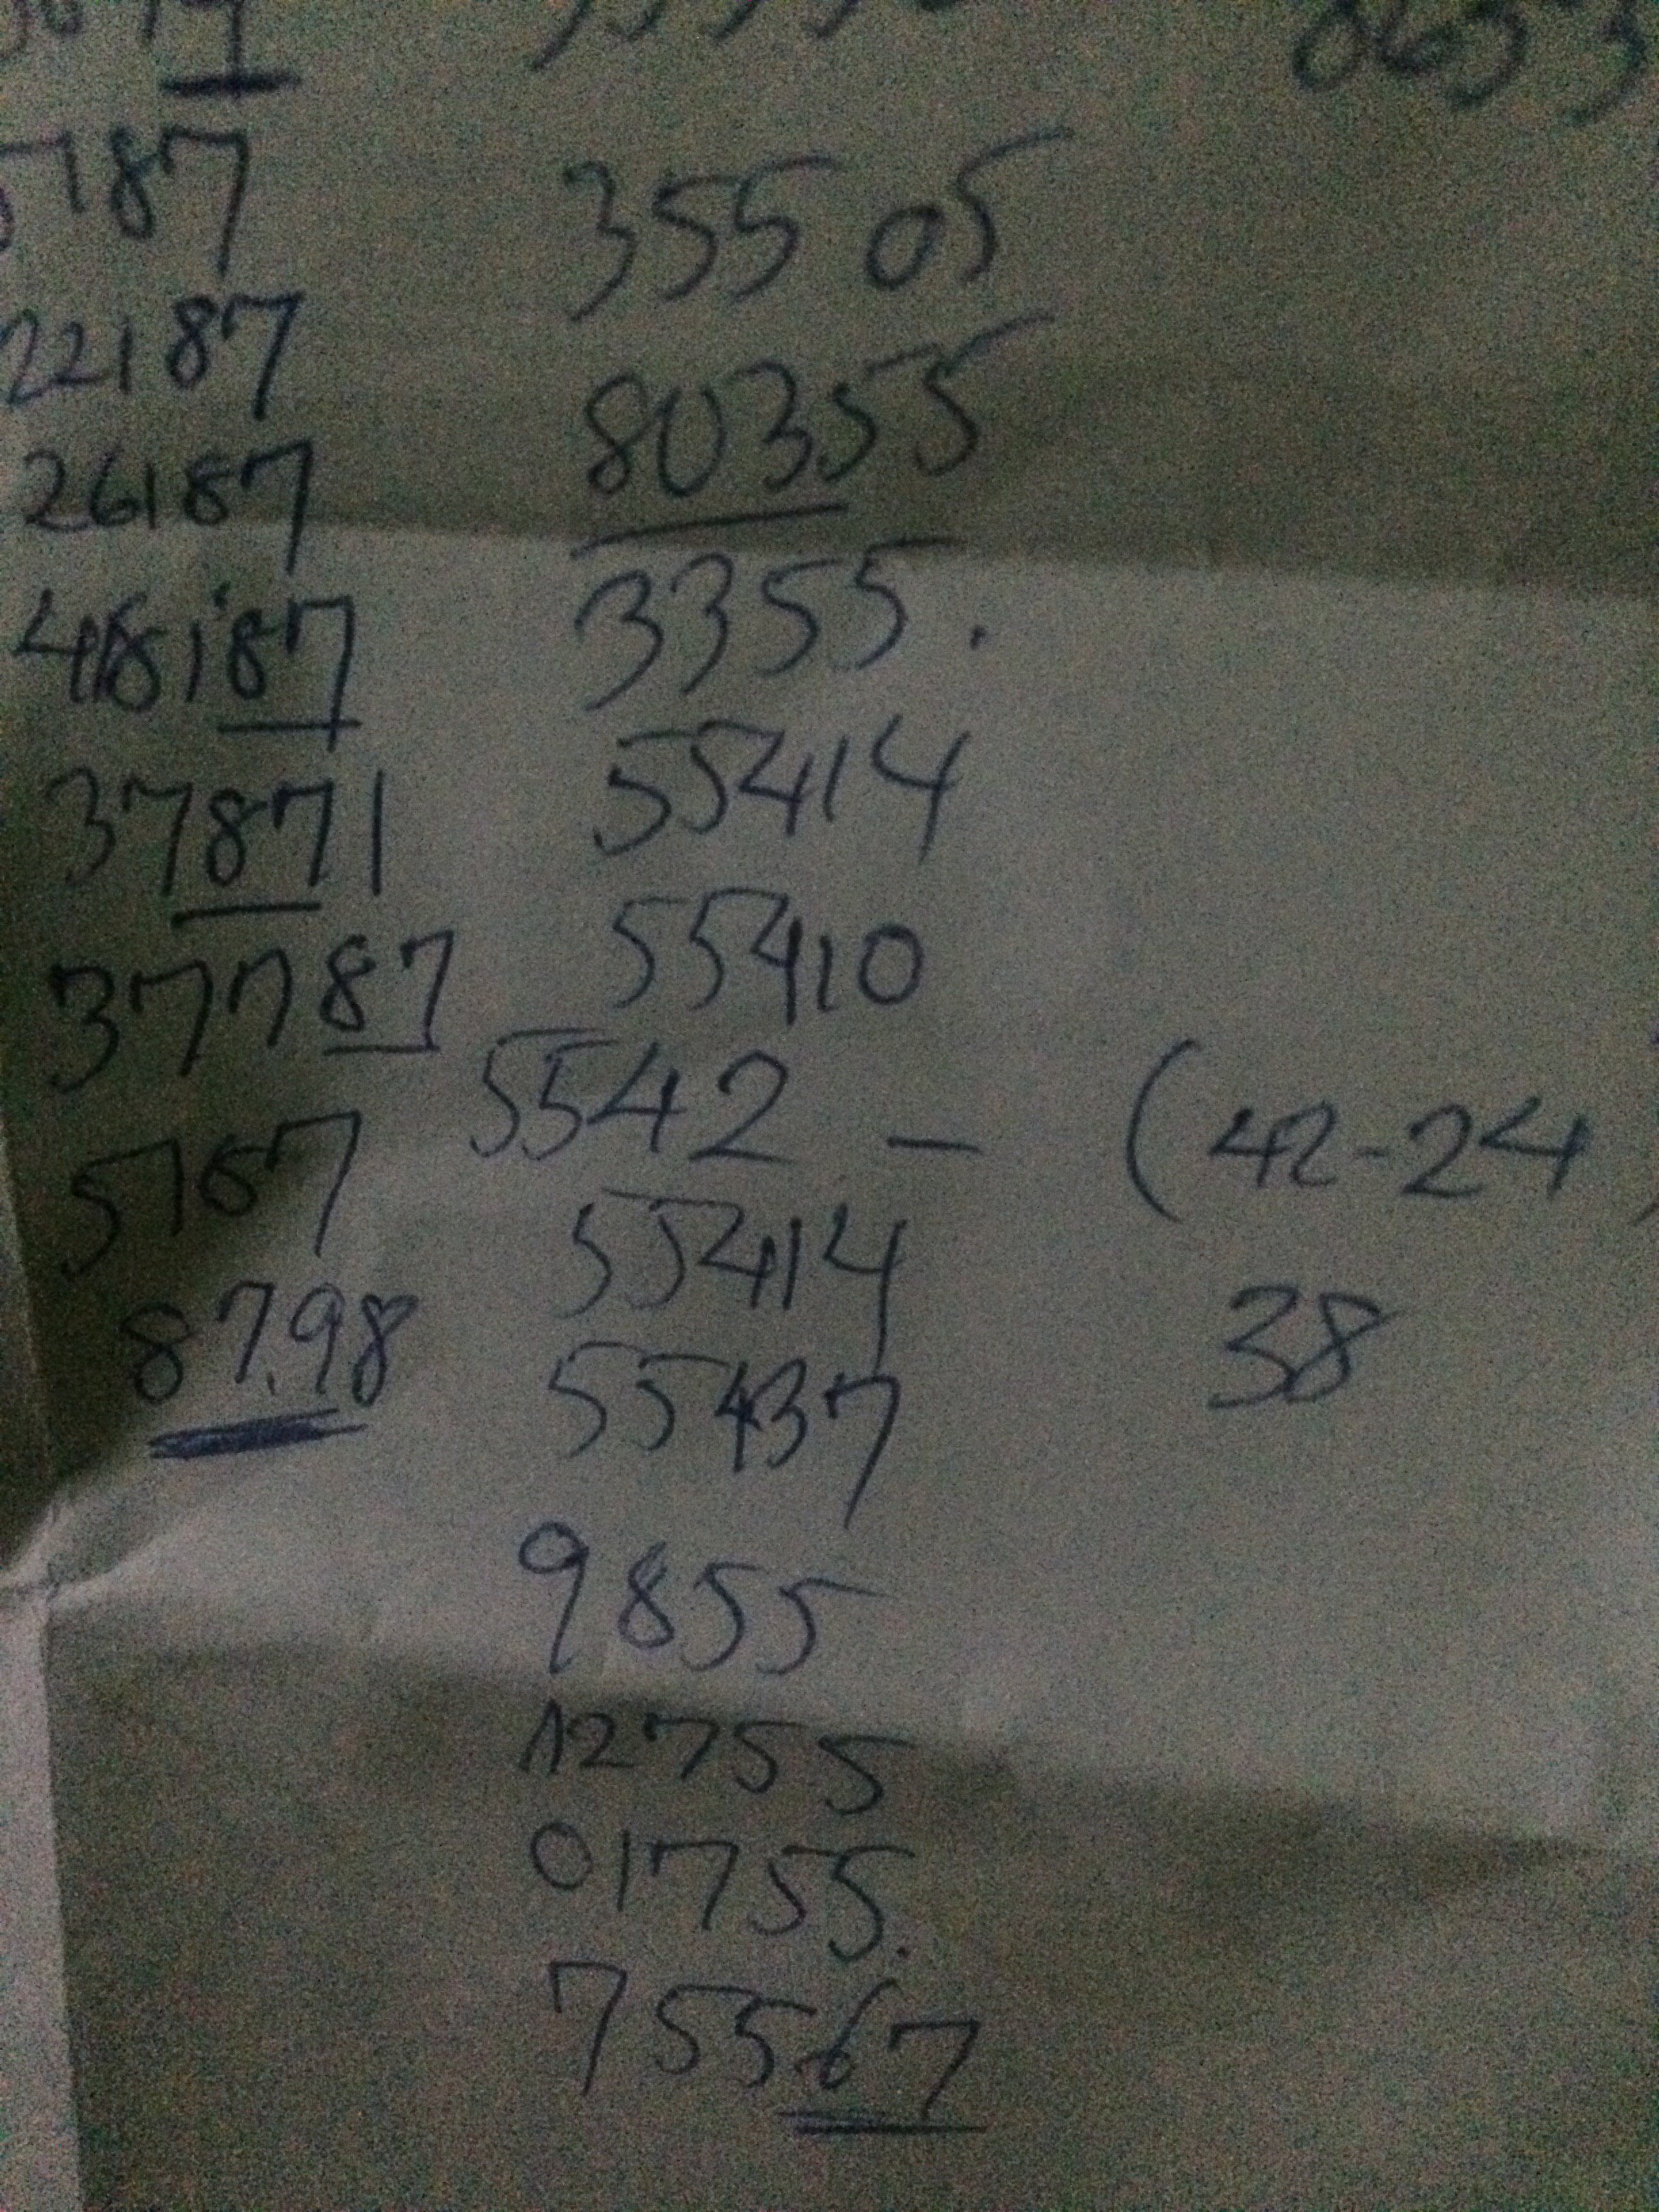 187
22187
26187
48187
37871
37787
5767
87.98
35505
80355
3355.
55414
55410
5542 — (42-24)
55414 38
55437
9855
12755
01755.
75567